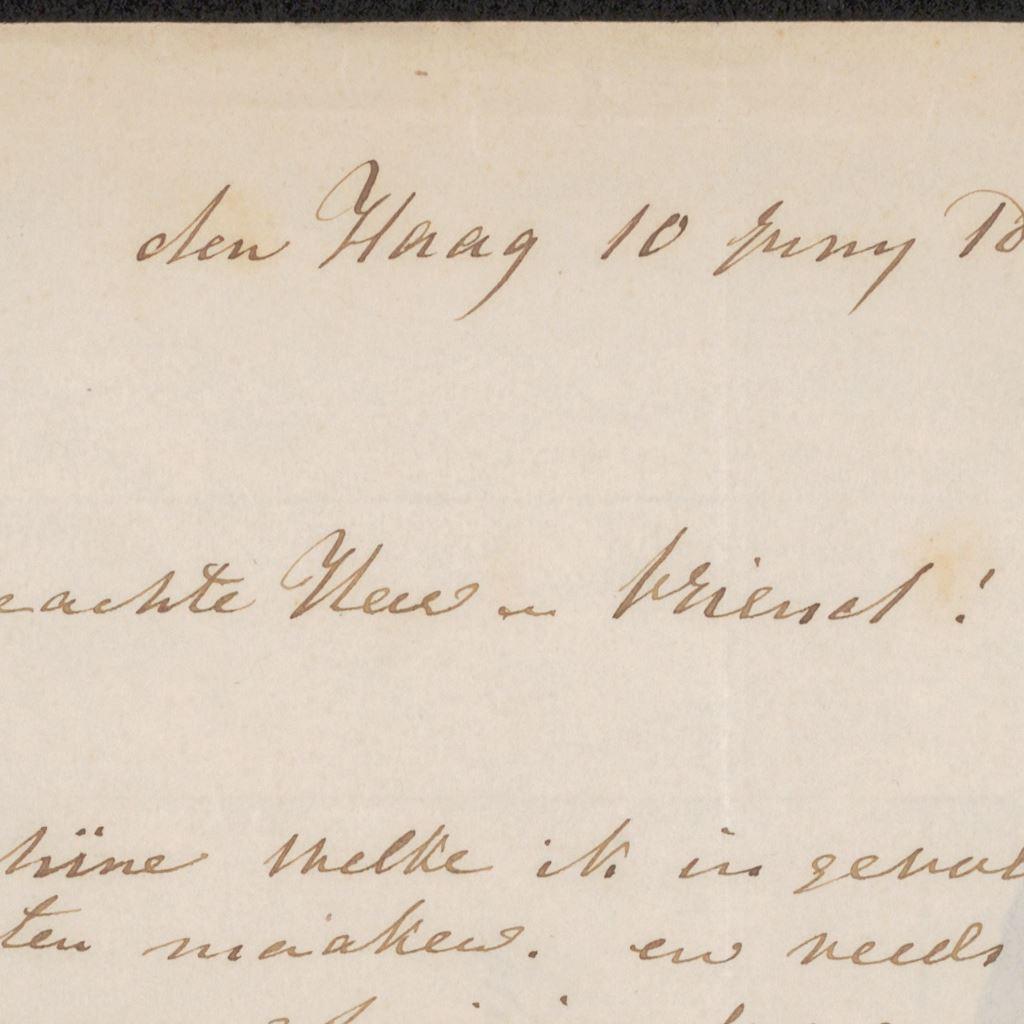 den Haag 10 Juny 18
eachte Heer en Vriend!
hïne welke ik in gevol
ten maaken. en reeds